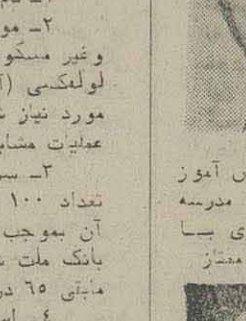 ۲ـ مو
وغیر مسکو
لولهکشی (آ
مورد نیاز
عملیات مشاب
۳ـ سر
تعداد ۱۰۰
آن بموجب
بانک ملت
مابتی ۶۵ در
آموز
مدرسه
ی بــا
ممتاز